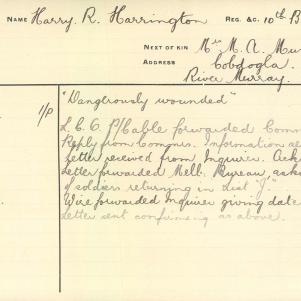 NAME Harry R. Harrington REG. &C. 10th B
NEXT OF KIN Mrs M. A. Mur
ADDRESS Cobdogla.
River Murray.
1/P "Dangerously wounded"
L.C.O. P/Cable forwarded Comm
Reply from Commrs. Information
Letter received from Inquirer. Ack
Letter forwarded Melb. Bureau, aski
of soldiers returning in List "J".
Wire forwarded Inquirer giving date
Letter sent confirming as above.